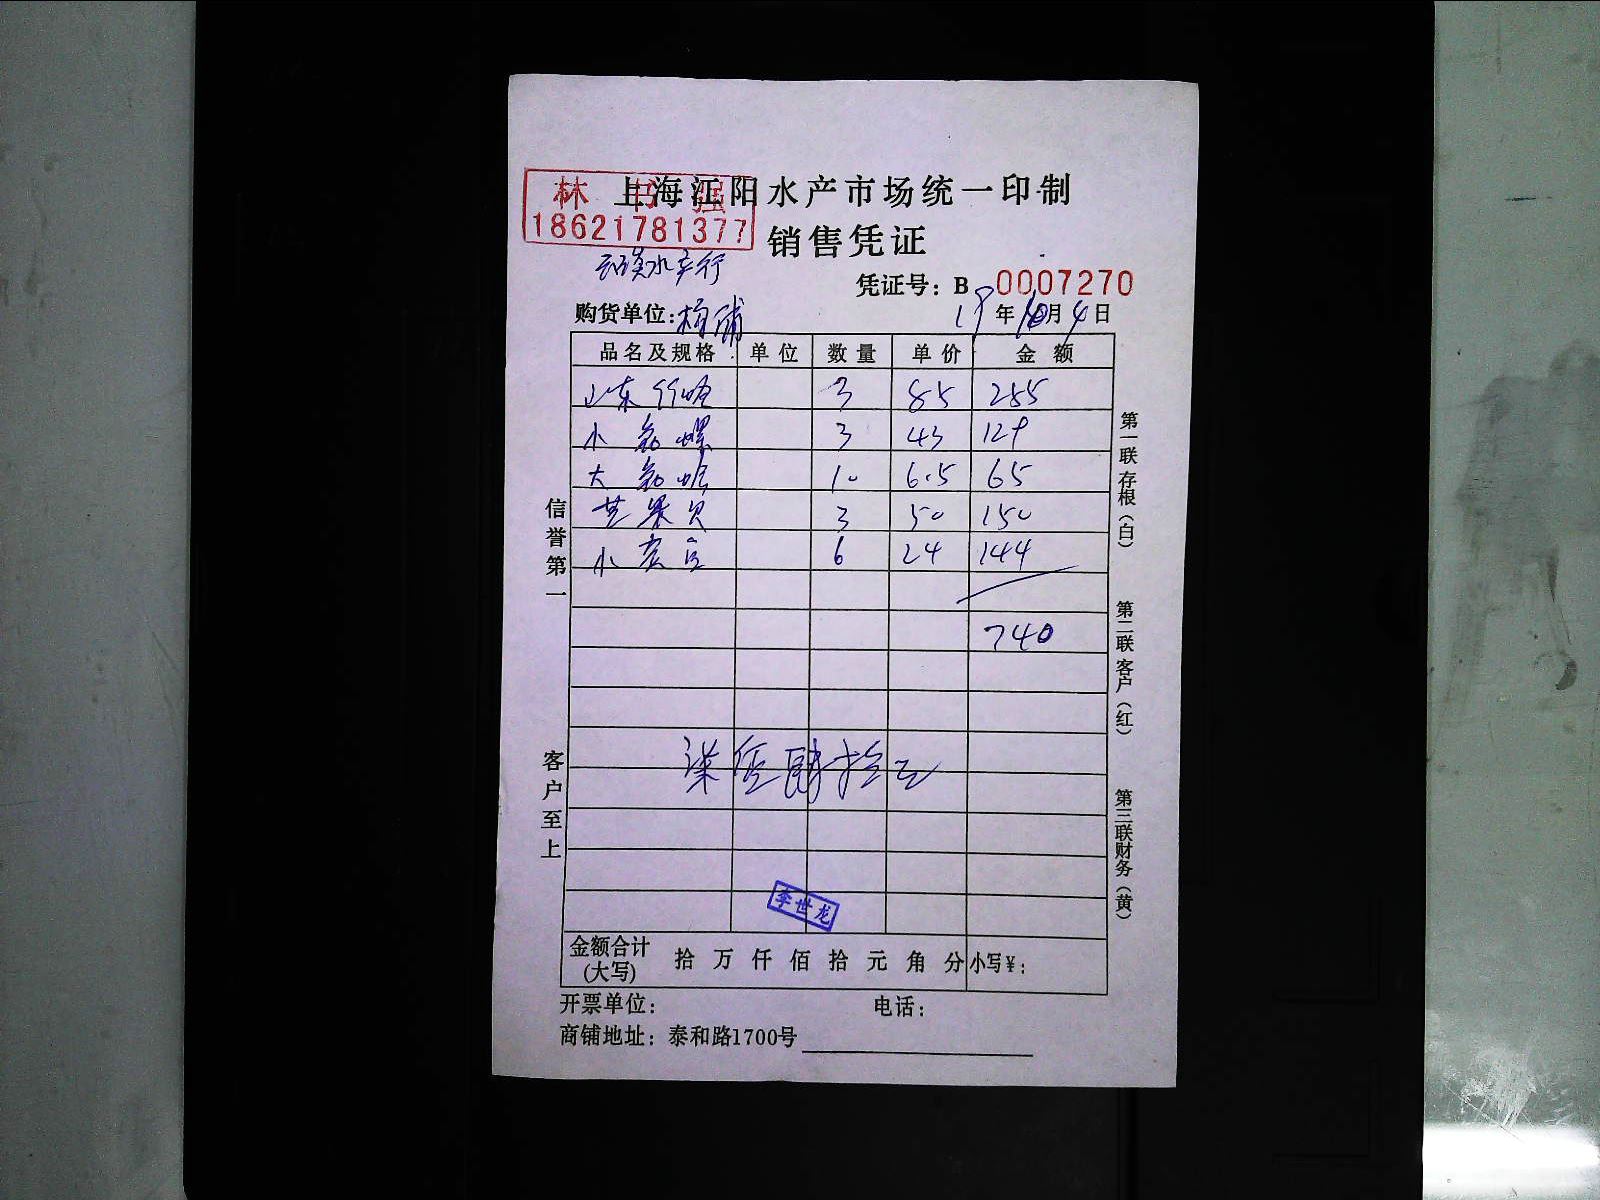 上海江阳水产市场统一印制
林书强
18621781377
销售凭证
水产行
凭证号：B 0007270
购货单位：
19年10月4日
品名及规格 单位 数量 单价 金额
山东 3 85 255
小 螺 3 43 129
大 10 6.5 65
苹果贝 3 50 150
小 6 24 144
740
柒佰肆拾元
李世龙
金额合计(大写) 拾 万 仟 佰 拾 元 角 分 小写¥：
开票单位： 电话：
商铺地址：泰和路1700号
信誉第一
客户至上
第一联 存根（白）
第二联 客户（红）
第三联 财务（黄）